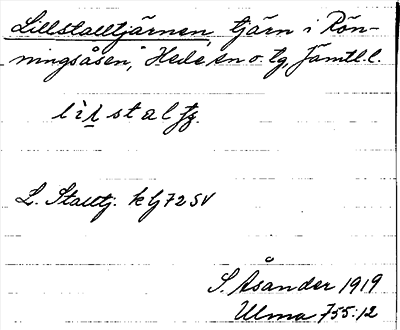 Lillstalltjärnen, tjärn i Rön-
ningsåsen, Hede sn o. tg, Jämtl. l.
L. Stalltj. kfj 72 SV
S. Åsander 1919
Ulma 755:12